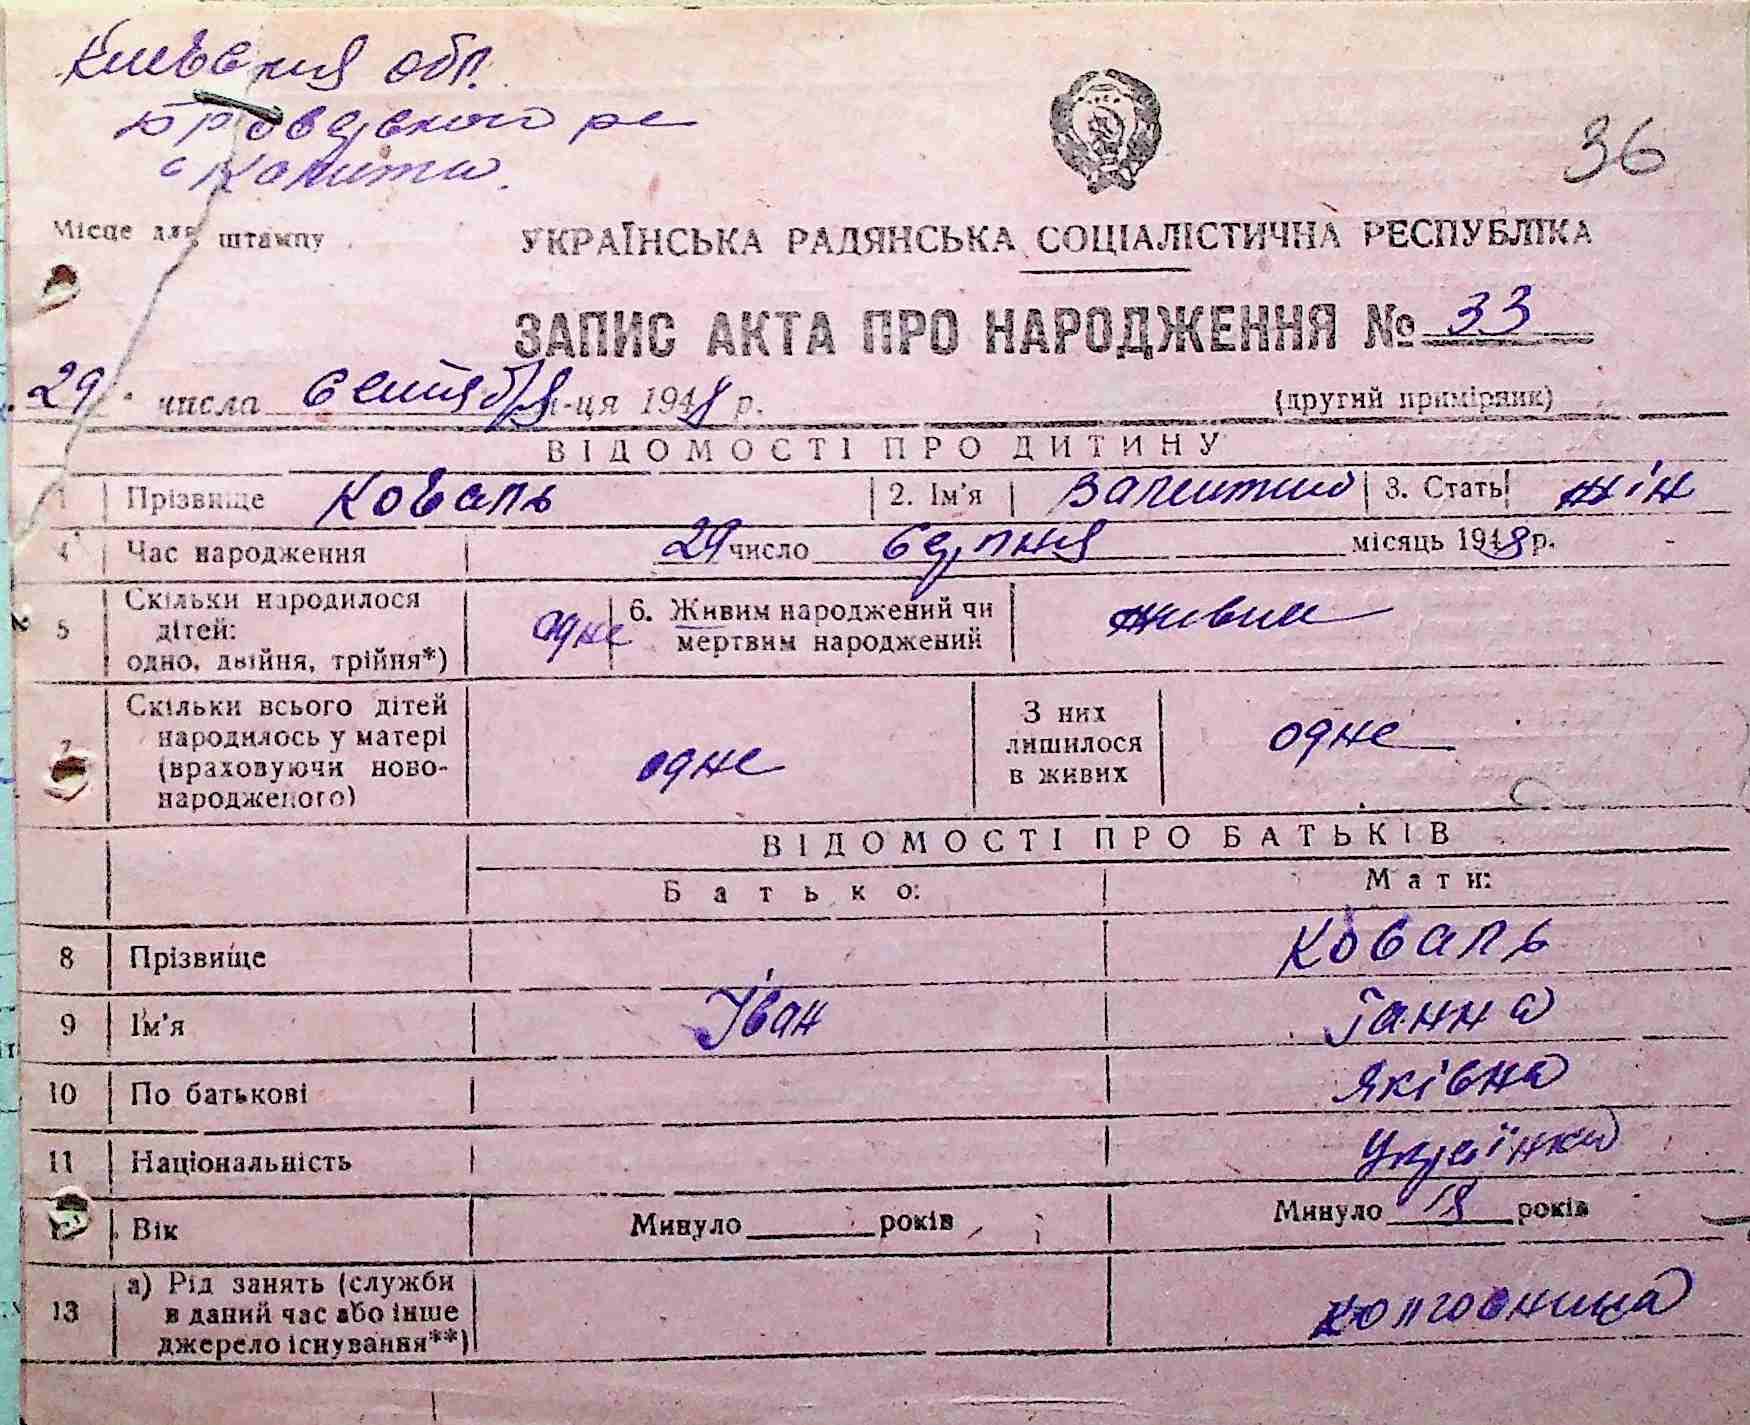 Київська обл.
Броварського р-н
с Калита.
36
Місце для штампу
УКРАЇНСЬКА РАДЯНСЬКА СОЦІАЛІСТИЧНА РЕСПУБЛІКА
ЗАПИС АКТА ПРО НАРОДЖЕННЯ № 33
29 числа сентября м-ця 1948 р. (другий примірник)
ВІДОМОСТІ ПРО ДИТИНУ
1 Прізвище Коваль 2. Ім'я Валентина 3. Стать жін
4 Час народження 29 число серпня місяць 1948 р.
5 Скільки народилося дітей: одно, двійня, трійня*) одне 6. Живим народжений чи мертвим народжений живим
7 Скільки всього дітей народилось у матері (враховуючи новонародженого) одне З них лишилося в живих одне
ВІДОМОСТІ ПРО БАТЬКІВ
Батько: Мати:
8 Прізвище Коваль
9 Ім'я Іван Ганна
10 По батькові Яківна
11 Національність Українка
Вік Минуло років Минуло 18 років
13 а) Рід занять (служби в даний час або інше джерело існування**) колгоспниця